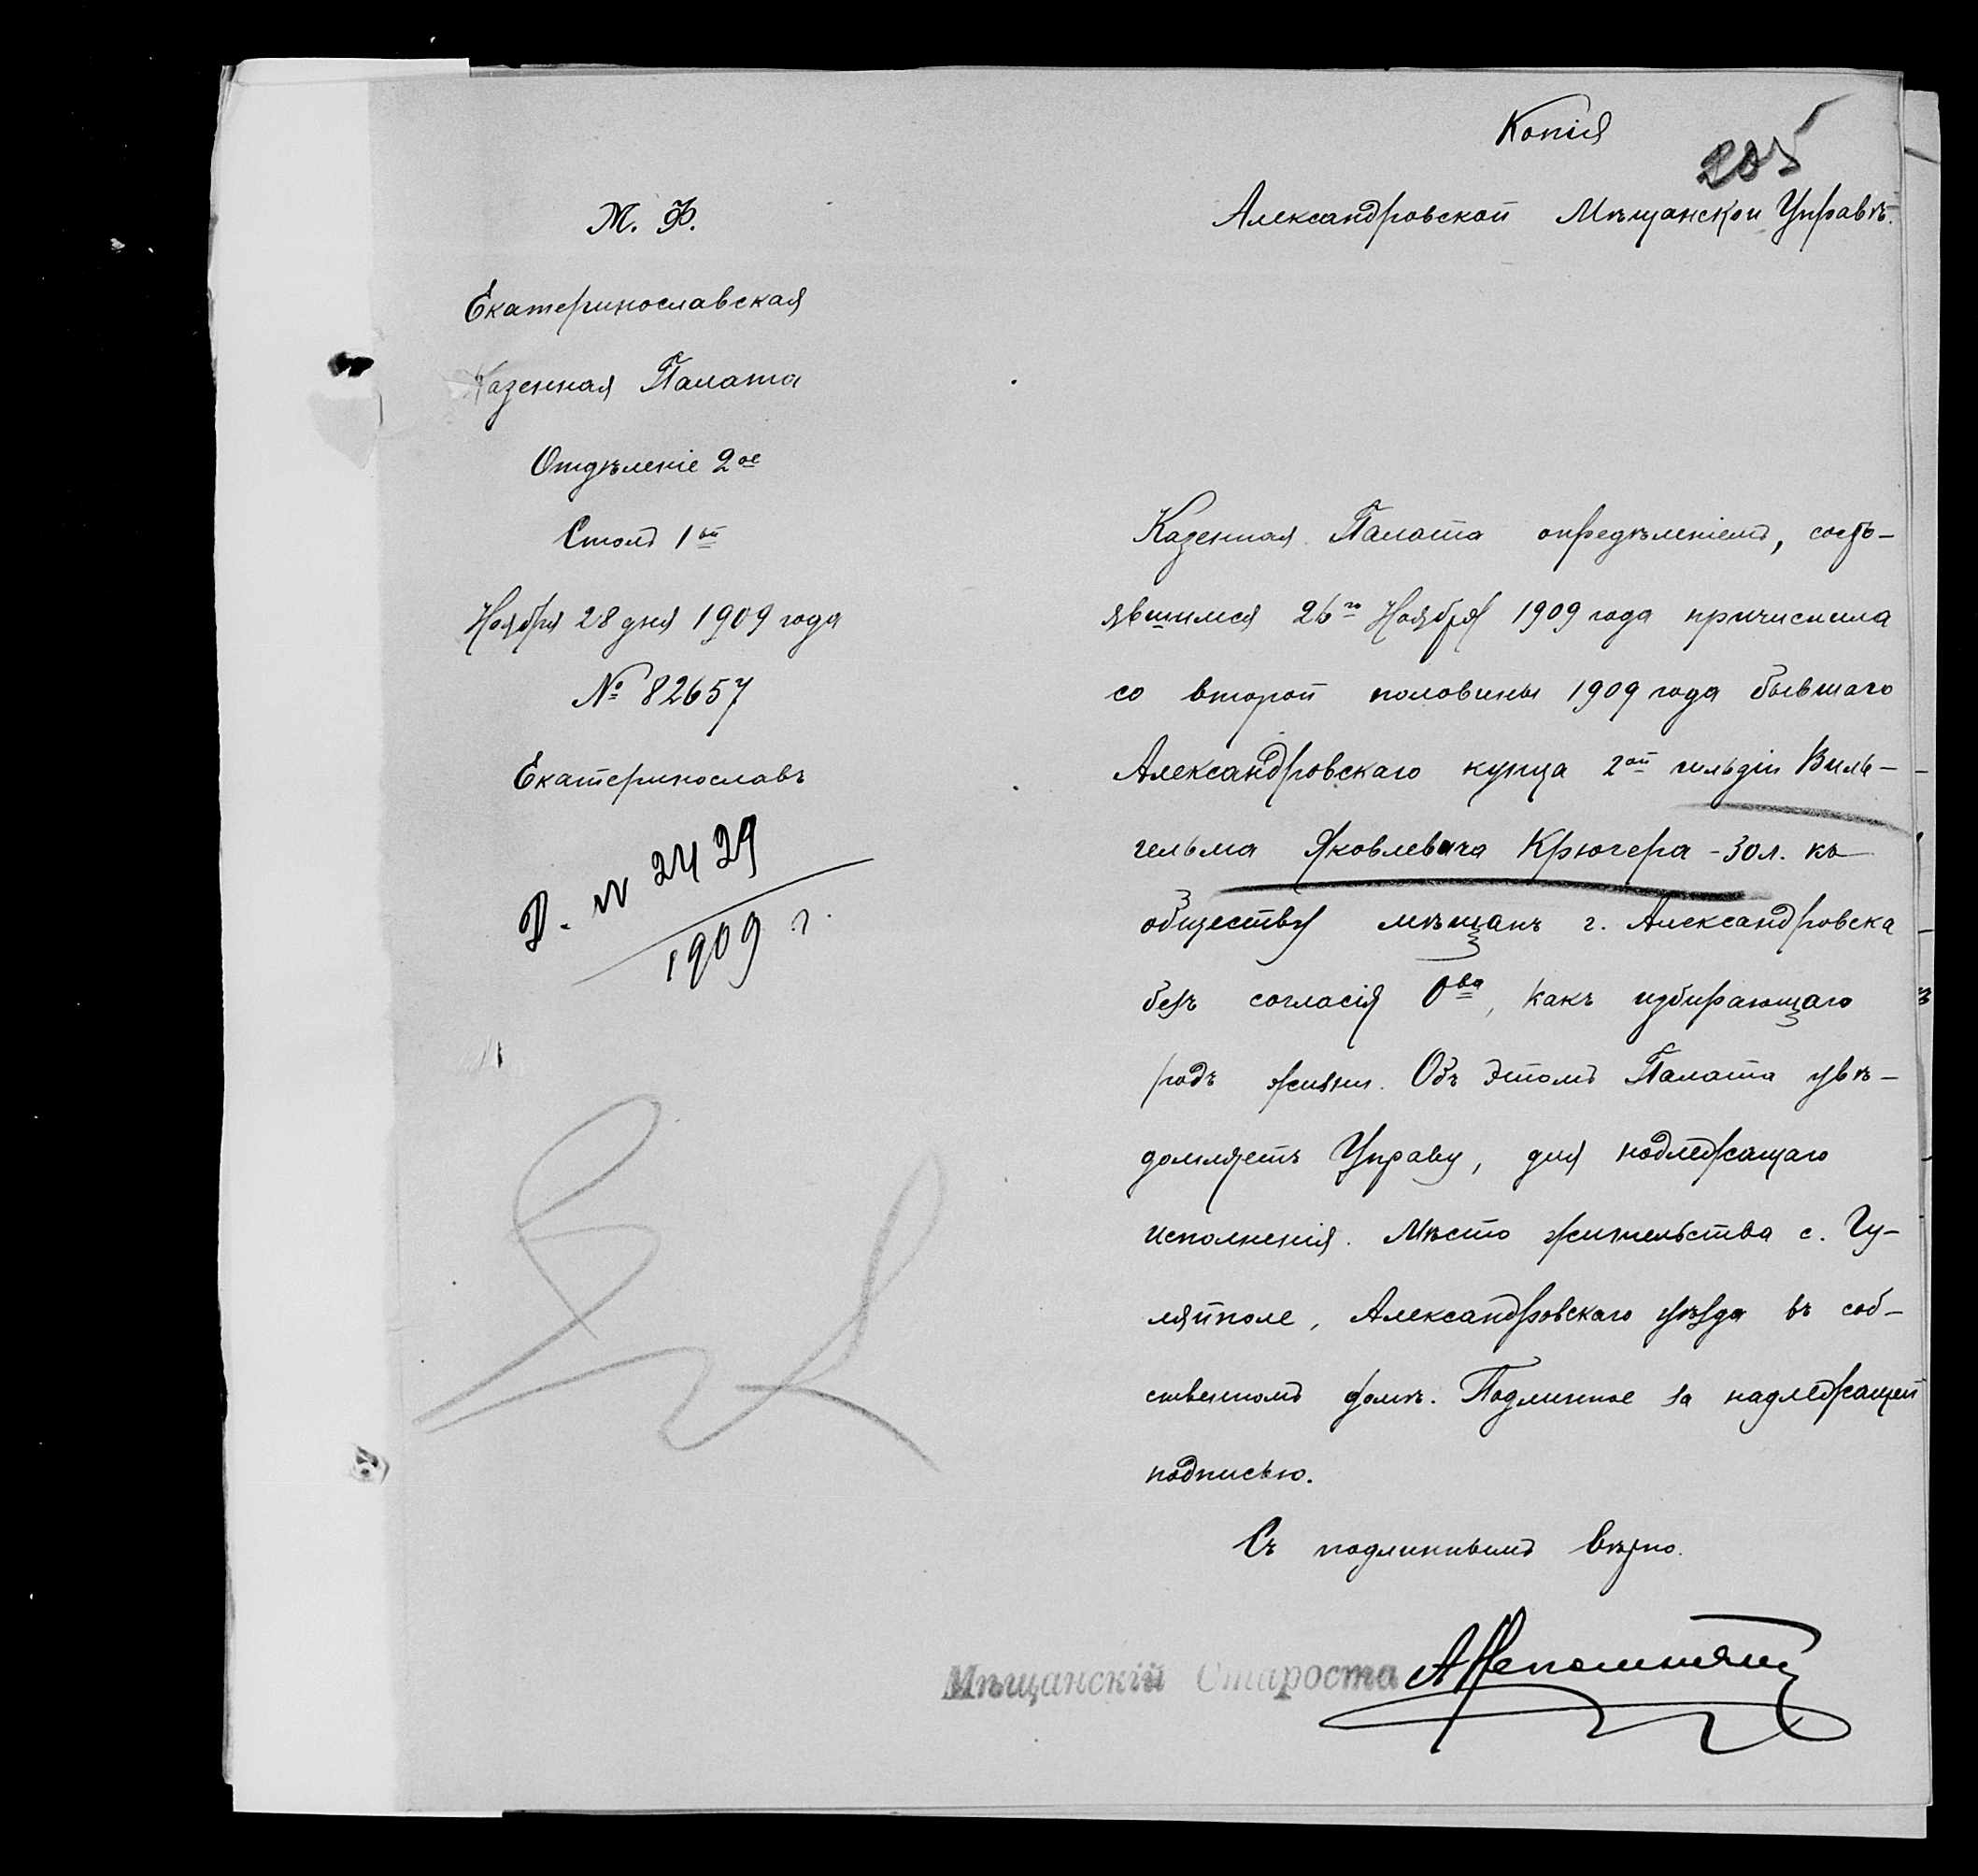 Копія
205
М. Ф.
Екатеринославская
Казенная Палата
Отдѣленіе 2ое
Столъ 1ый
Ноября 28 дня 1909 года
№ 82657
Екатеринославъ
Д. № 2429
1909 г.
Александровской Мѣщанской Управѣ.
Казенная Палата опредѣленіемъ, состо-
явшимся 26го Ноября 1909 года причислила
со второй половины 1909 года бывшаго
Александровскаго купца 2ой гильдіи Виль-
гельма Яковлевича Крюгера - 30 л. къ
обществу мѣщанъ г. Александровска
безъ согласія Ова, какъ избирающаго
родъ жизни. Объ этомъ Палата увѣ-
домляетъ Управу, для надлежащаго
исполненія. Мѣсто жительства с. Гу-
ляйполе, Александровскаго уѣзда въ соб-
ственномъ домѣ. Подлинное за надлежащей
подписью.
Съ подлиннымъ вѣрно.
Мѣщанскій Староста АНепомнящій